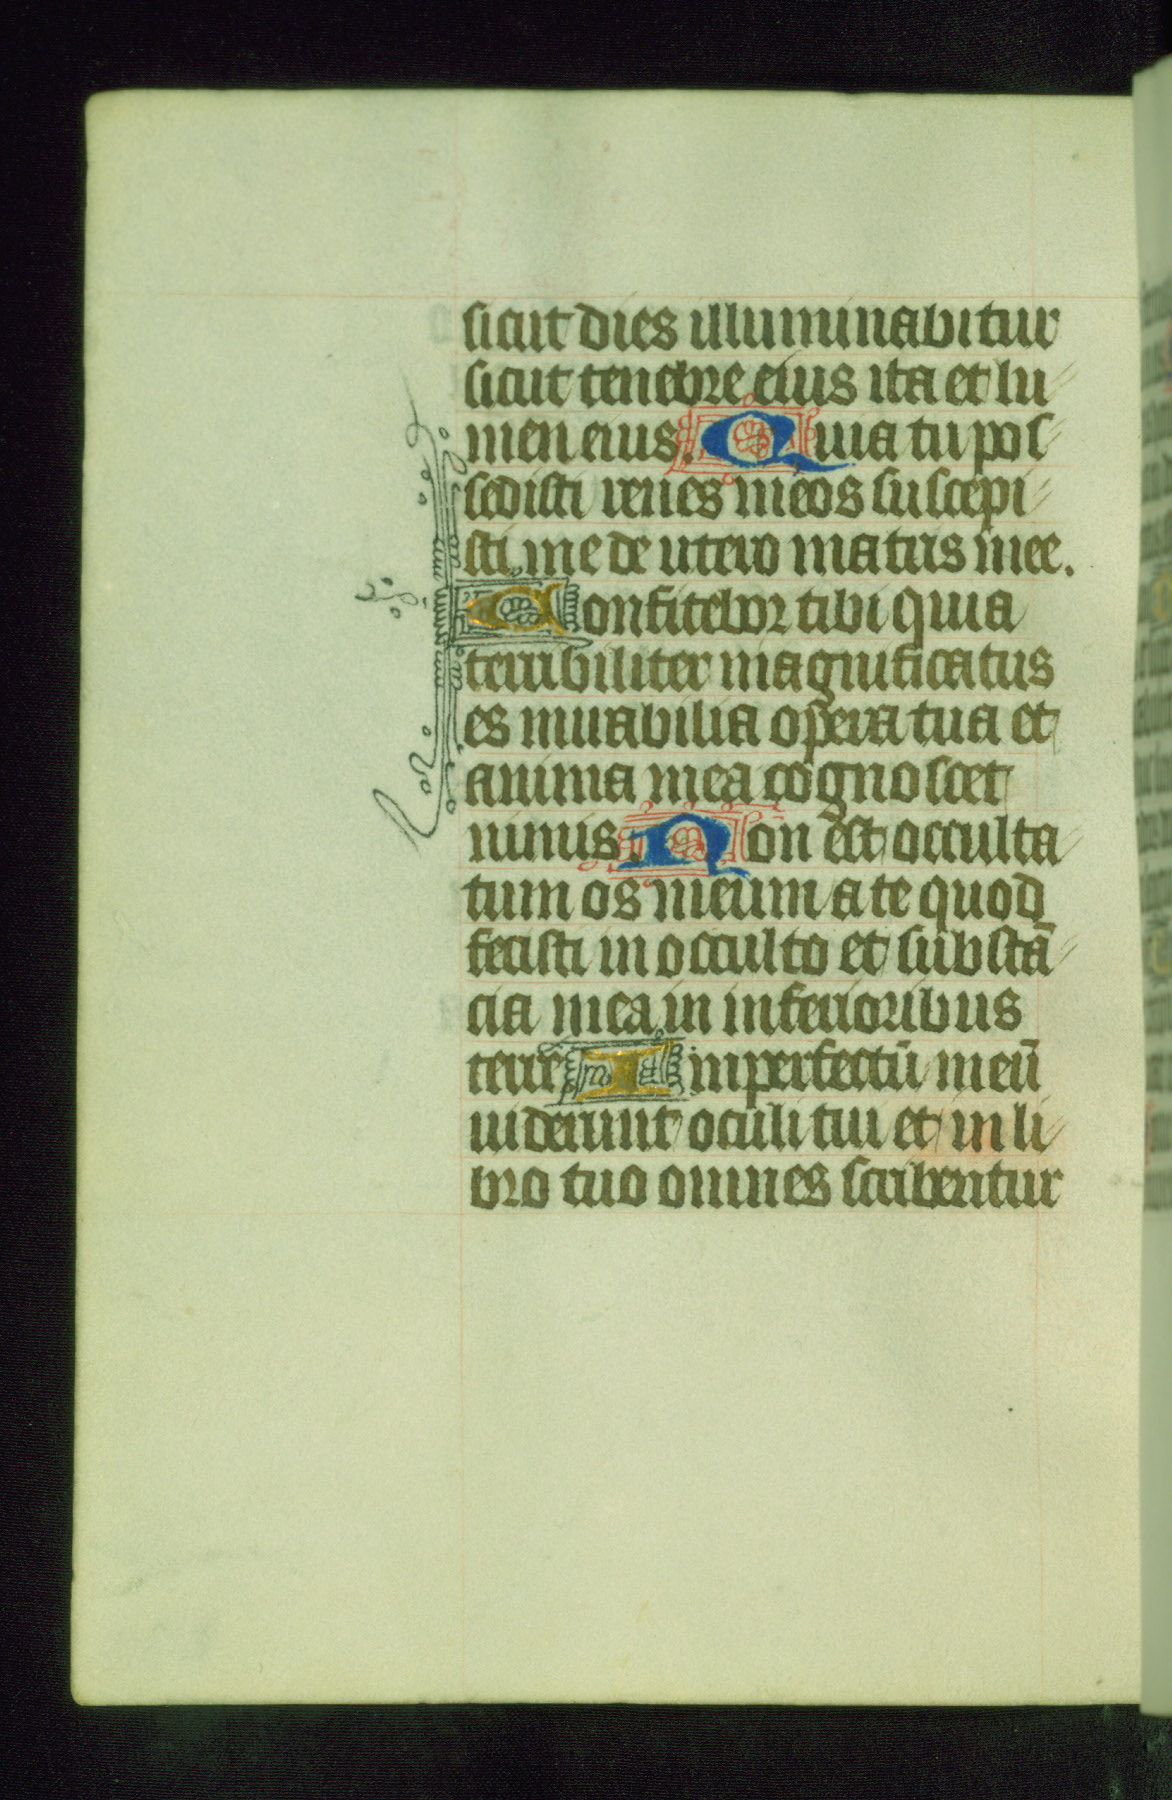 sicut dies illuminabitur
sicut tenebre eius ita et lu
men eius. Quia tu pos
sedisti renes meos suscepi
sti me de utero matris mee.
Confitebor tibi quia
terribiliter magnificatus
es mirabilia opera tua et
anima mea cognoscet
nimis. Non est occulta
tum os meum a te quod
fecisti in occulto et substā
cia mea in inferioribus
terre Inperfectū meū
uiderunt oculi tui et in li
bro tuo omnes scribentur